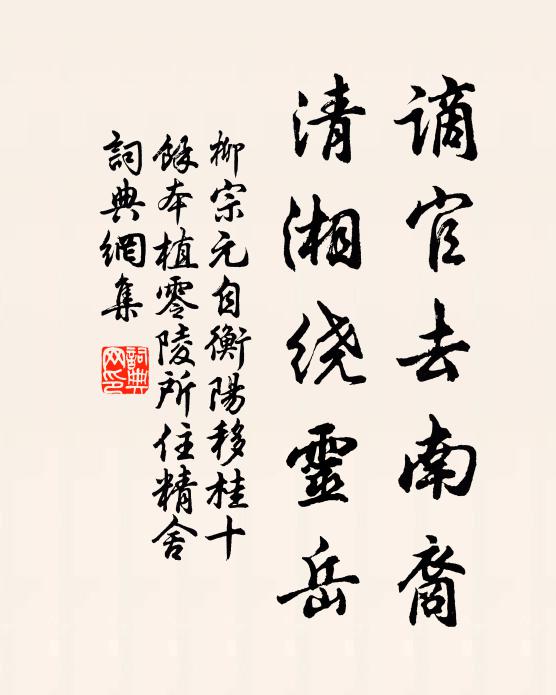 谪官去南裔
清湘绕靈岳
柳宗元自衡陽移桂十
餘本植零陵所住精舍
詞典網集
詞典
网印